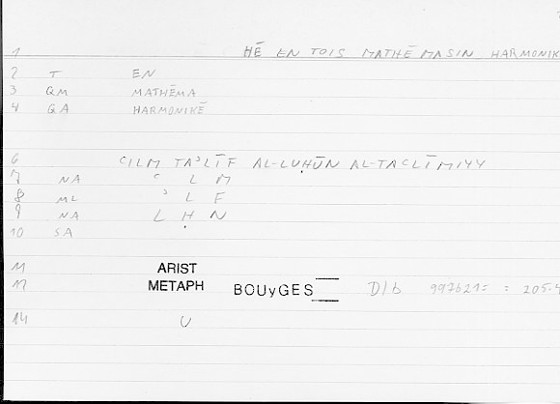 1 HĒ EN TOIS MATHĒMASIN HARMONIK
2 T EN
3 QM MATHĒMA
4 GA HARMONIKĒ
6 ʿILM TAʾLĪF AL-LUḤŪN AL-TAʿLĪMIYY
7 NA ʿ L M
8 ML ʾ L F
9 NA L Ḥ N
10 SA
11 ARIST
12 METAPH BOUyGES D/b 997b21 = 205.4
14 U